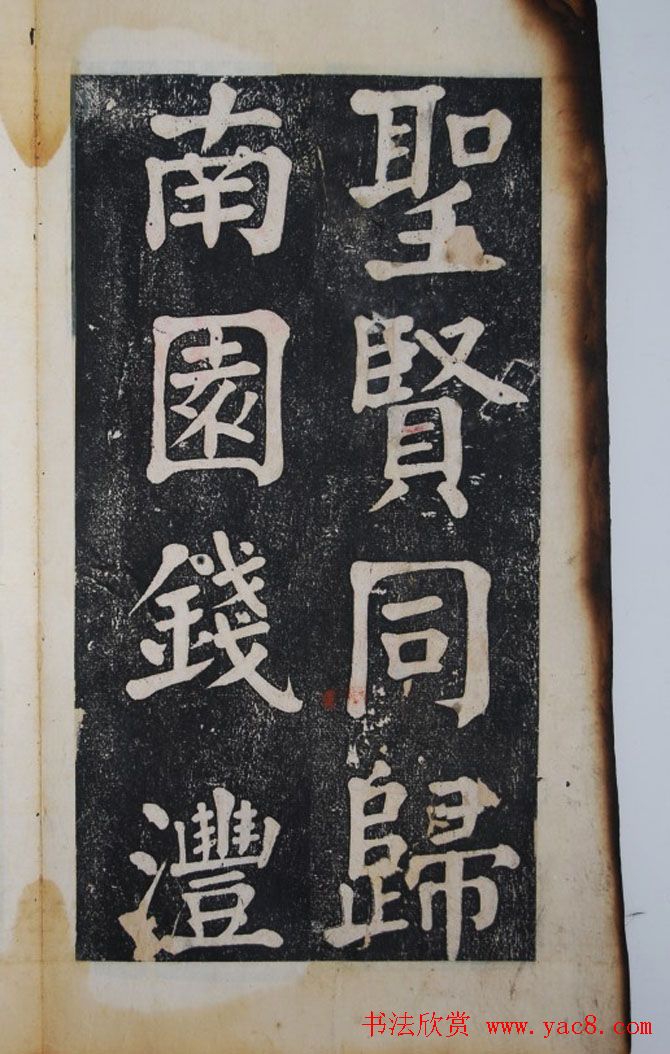 聖賢同歸
南園錢灃
书法欣赏 www.yac8.com